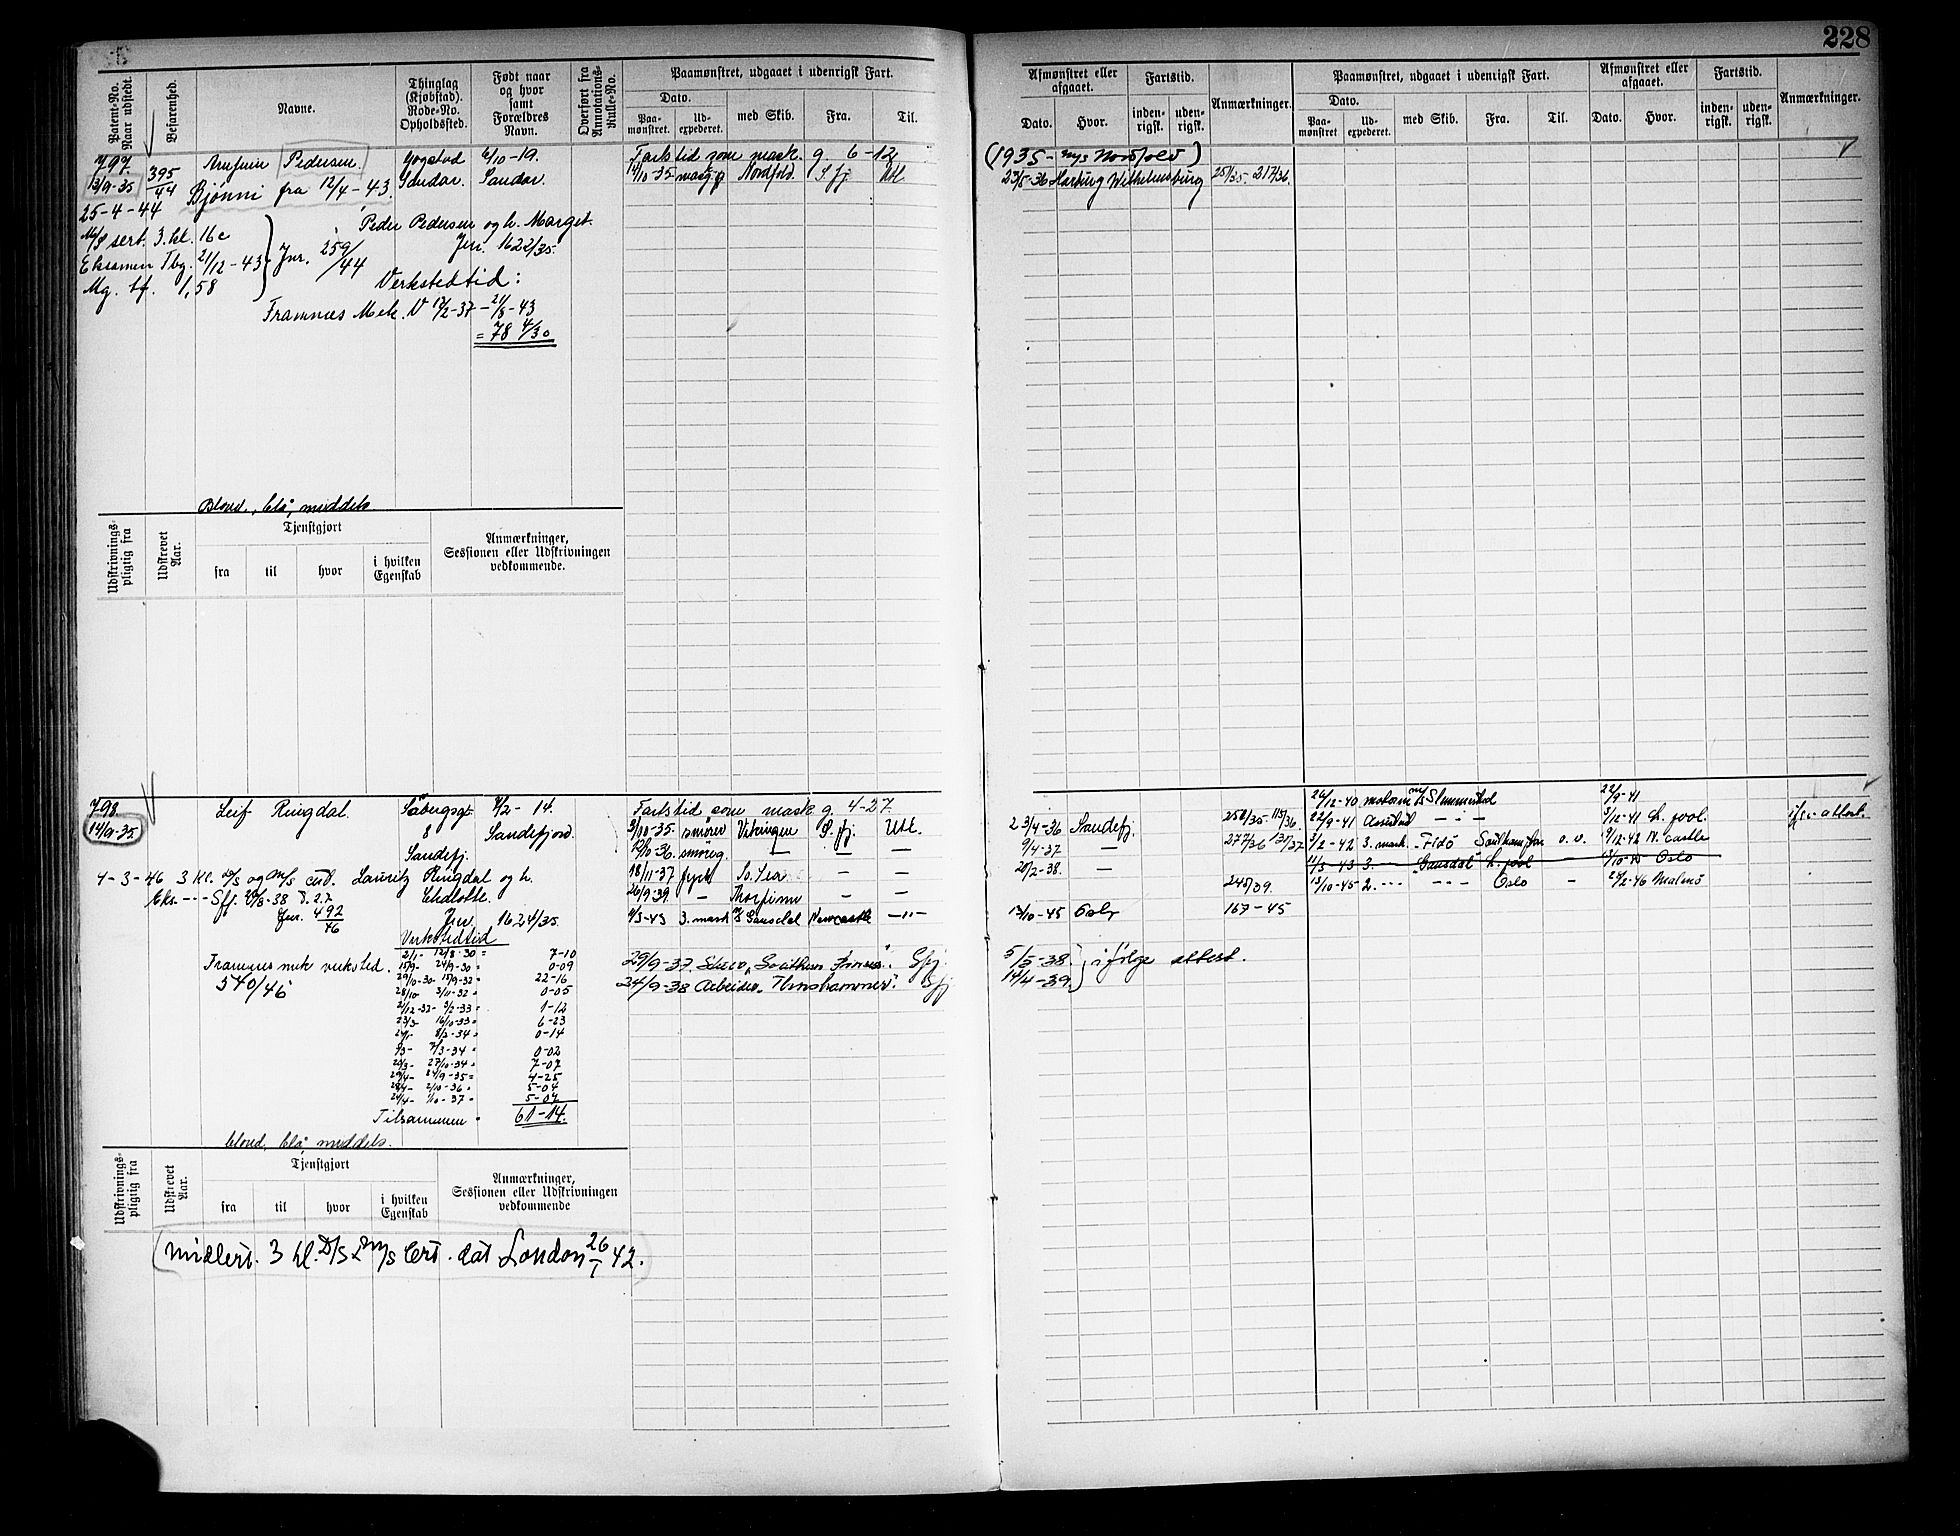 228
Patent-No. Naar udstedt.
Befarenhed.
Navne.
Thinglag (Kjøbstad). Rode-No. Opholdssted.
Født naar og hvor samt Forældres Navn.
Overført fra Annotations-Rulle-No.
Paamønstret, udgaaet i udenrigsk Fart.
Dato.
Paa-mønstret.
Ud-expederet.
med Skib.
Fra.
Til.
Afmønstret eller afgaaet.
Dato.
Hvor.
Fartstid.
inden-rigsk.
uden-rigsk.
Anmærkninger.
Paamønstret, udgaaet i udenrigsk Fart.
Dato.
Paa-mønstret
Ud-expederet.
med Skib.
Fra.
Til.
Afmønstret eller afgaaet.
Dato.
Hvor.
Fartstid.
inden-rigsk.
uden-rigsk.
Anmærkninger.
797.
13/9-35
395/44
Pedersen.
Gogstad
6/10-19.
Fartstid som mask. g. 6-12
(1935 - m/s Nordfold)
Bjønni fra 12/4-43.
Sandar.
Sandar.
14/10-35
Nordfold.
S.fj.
Utl.
23/5-36 Harburg Wilhelmsburg
251/35. 217/36.
25-4-44
M/S sert. 3. kl. 16c
Eksamen Tbg. 21/12-43
Mg. tf. 1,58
Jnr. 259/44
Peder Pedersen og h. Marget.
Jnr. 1622/35.
Verkstedtid:
Framnæs Mek. V 12/2-37 - 21/8-43
= 78 4/30
Blond, blå, middels
Udskrivnings-pligtig fra
Udskrevet Aar.
Tjenstgjort
fra
til
hvor
i hvilken Egenskab
Anmærkninger, Sessionen eller Udskrivningen vedkommende.
798.
14/9-35.
Leif Ringdal.
Sandefjord.
Sandefj.
Fartstid som mask g. 4-27
3/10-35. smører Vikingen S.fj. Utl.
12/10-36. smøreg. — — —
18/11-37 fyrb So. Sea — —
26/9-39. — Thorfinn — —
3. mark M/S Gausdal Newcastle —"—
23/4-36 Sandefj.
9/4-37 —
20/2-38. —
13/10-45 Oslo
258/35. 115/36.
277/36 131/37
245/39.
167-45
26/12-40 motorm. M/S Slemmestad
22/9-41
22/9-41
3/2-42 3. mark. Fidö Southampton o.v. 9/12-42 N. castle
11/3-43 3. Gausdal L. pool — 13/10-45 Oslo
13/10-45 2. Oslo — 2/2-46 Malmö
4-3-46 3 kl. D/S og M/S cert. Lauritz Ringdal og h.
Jnr. 492/46
Jnr. 1624/35.
Verkstedtid
Framnæs mek verksted.
540/46
2/1- 12/8-30 = 7-10
15/9- 24/9-30 = 0-09
29/10-30 - 15/9-32 = 22-16
28/10 3/11-32 = 0-05
21/12-32- 3/2-33 = 1-12
23/3- 16/10-33 = 6-23
24/1- 8/2-34 = 0-14
5/3- 7/3-34 = 0-02
20/3- 27/10-34 = 7-07
29/4- 24/9-35 = 4-25
28/4- 2/10-36 = 5-04
24/4- 1/10-37 = 5-07
Tilsammen = 61-14.
29/9-37. Southern Princess. Sfj.
24/9-38 Arbeider. Thorshammer. Sfj
5/5-38.
14/4-39.
ifølge attest.
blond, blå middels.
Udskrivnings-pligtig fra
Udskrevet Aar.
Tjenstgjort
fra
til
hvor
i hvilken Egenskab
Anmærkninger, Sessionen eller Udskrivningen vedkommende
midlert. 3 kl. D/S & M/S Cert. dat London 26/1 42.